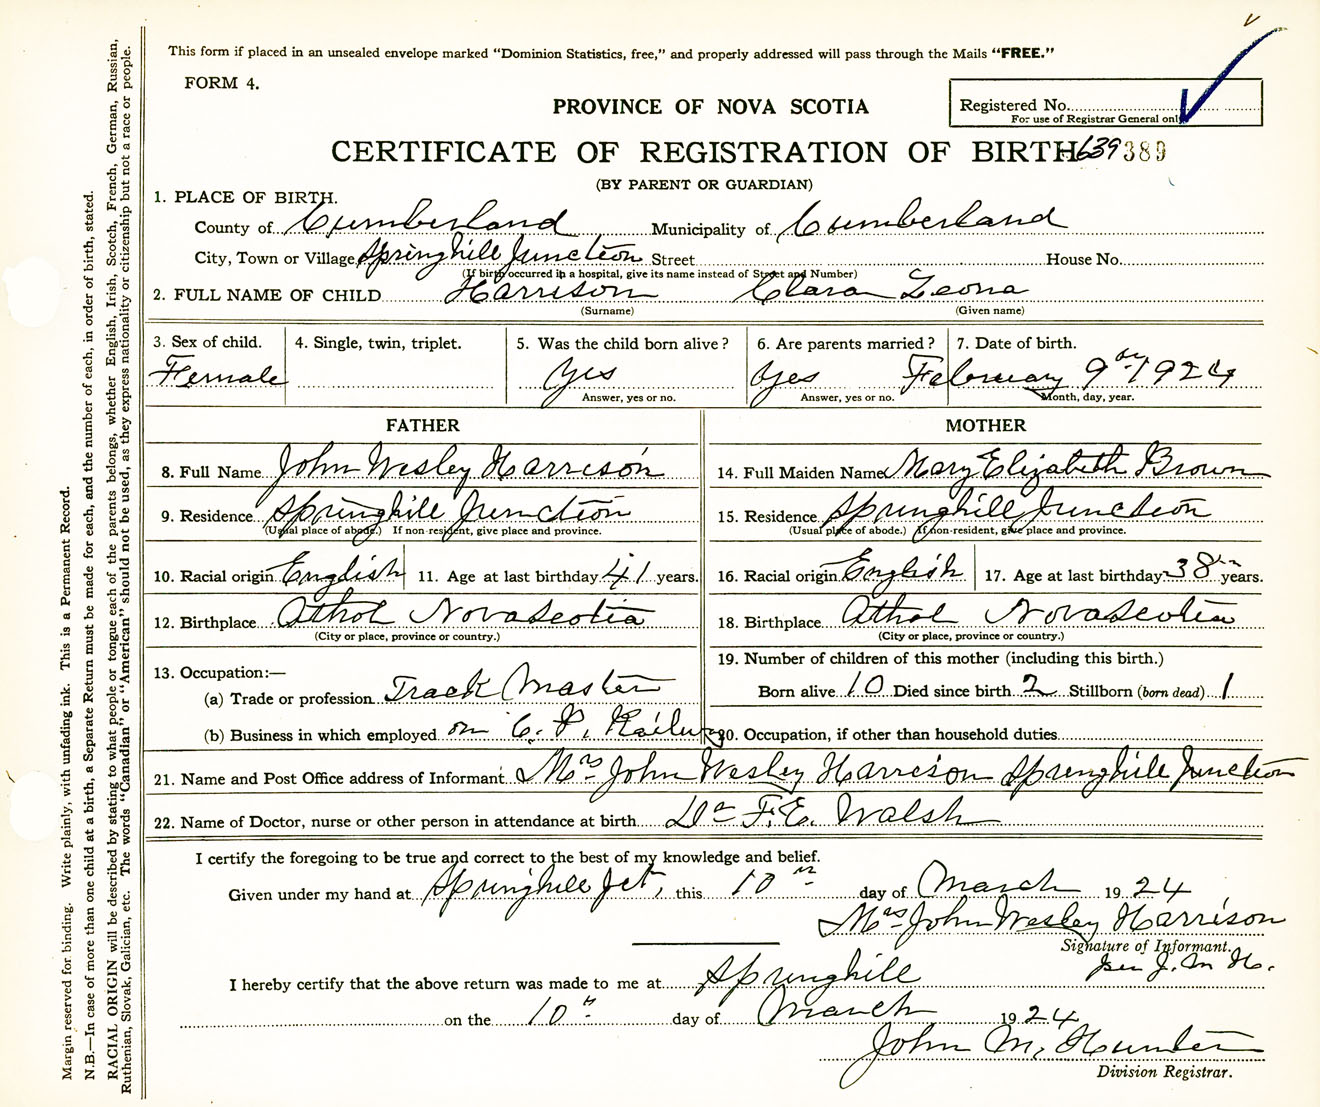 This form if placed in an unsealed envelope marked “Dominion Statistics, free,” and properly addressed will pass through the Mails “FREE.”
FORM 4.
PROVINCE OF NOVA SCOTIA
Registered No.
For use of Registrar General only
CERTIFICATE OF REGISTRATION OF BIRTH 639 389
(BY PARENT OR GUARDIAN)
1. PLACE OF BIRTH.
County of Cumberland Municipality of Cumberland
City, Town or Village Springhill Junction Street House No.
(If birth occurred in a hospital, give its name instead of Street and Number)
2. FULL NAME OF CHILD Harrison Clara Leona
(Surname) (Given name)
3. Sex of child. 4. Single, twin, triplet. 5. Was the child born alive? 6. Are parents married? 7. Date of birth.
Female Yes Yes February 9th 1924
Answer, yes or no. Answer, yes or no. Month, day, year.
FATHER MOTHER
8. Full Name John Wesley Harrison 14. Full Maiden Name Mary Elizabeth Brown
9. Residence Springhill Junction 15. Residence Springhill Junction
(Usual place of abode.) If non-resident, give place and province. (Usual place of abode.) If non-resident, give place and province.
10. Racial origin English 11. Age at last birthday 41 years. 16. Racial origin English 17. Age at last birthday 38 years.
12. Birthplace Athol Nova Scotia 18. Birthplace Athol Nova Scotia
(City or place, province or country.) (City or place, province or country.)
13. Occupation:— 19. Number of children of this mother (including this birth.)
(a) Trade or profession Track Master Born alive 10 Died since birth 2 Stillborn (born dead) 1
(b) Business in which employed on C. P. Railway 20. Occupation, if other than household duties
21. Name and Post Office address of Informant Mrs John Wesley Harrison Springhill Junction
22. Name of Doctor, nurse or other person in attendance at birth Dr F. E. Walsh
I certify the foregoing to be true and correct to the best of my knowledge and belief.
Given under my hand at Springhill Jct, this 10th day of March 1924
Mrs John Wesley Harrison
Signature of Informant.
per J. M. H.
I hereby certify that the above return was made to me at Springhill
on the 10th day of March 1924
John M. Hunter
Division Registrar.
Margin reserved for binding. Write plainly, with unfading ink. This is a Permanent Record.
N.B.—In case of more than one child at a birth, a Separate Return must be made for each, and the number of each, in order of birth, stated.
RACIAL ORIGIN will be described by stating to what people or tongue each of the parents belongs, whether English, Irish, Scotch, French, German, Russian,
Ruthenian, Slovak, Galician, etc. The words “Canadian” or “American” should not be used, as they express nationality or citizenship but not a race or people.